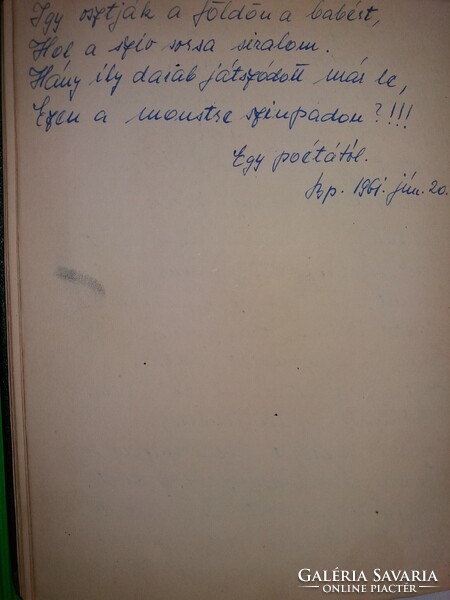 Így osztják a földön a babért,
Hol, a szív sorsa siralom.
Hány ily darab játszódott már le,
Ezen a monstre színpadon?!!!
Egy poétától.
Bp. 1961. jún. 20.
GALÉRIA SAVARIA
ONLINE PIACTÉR